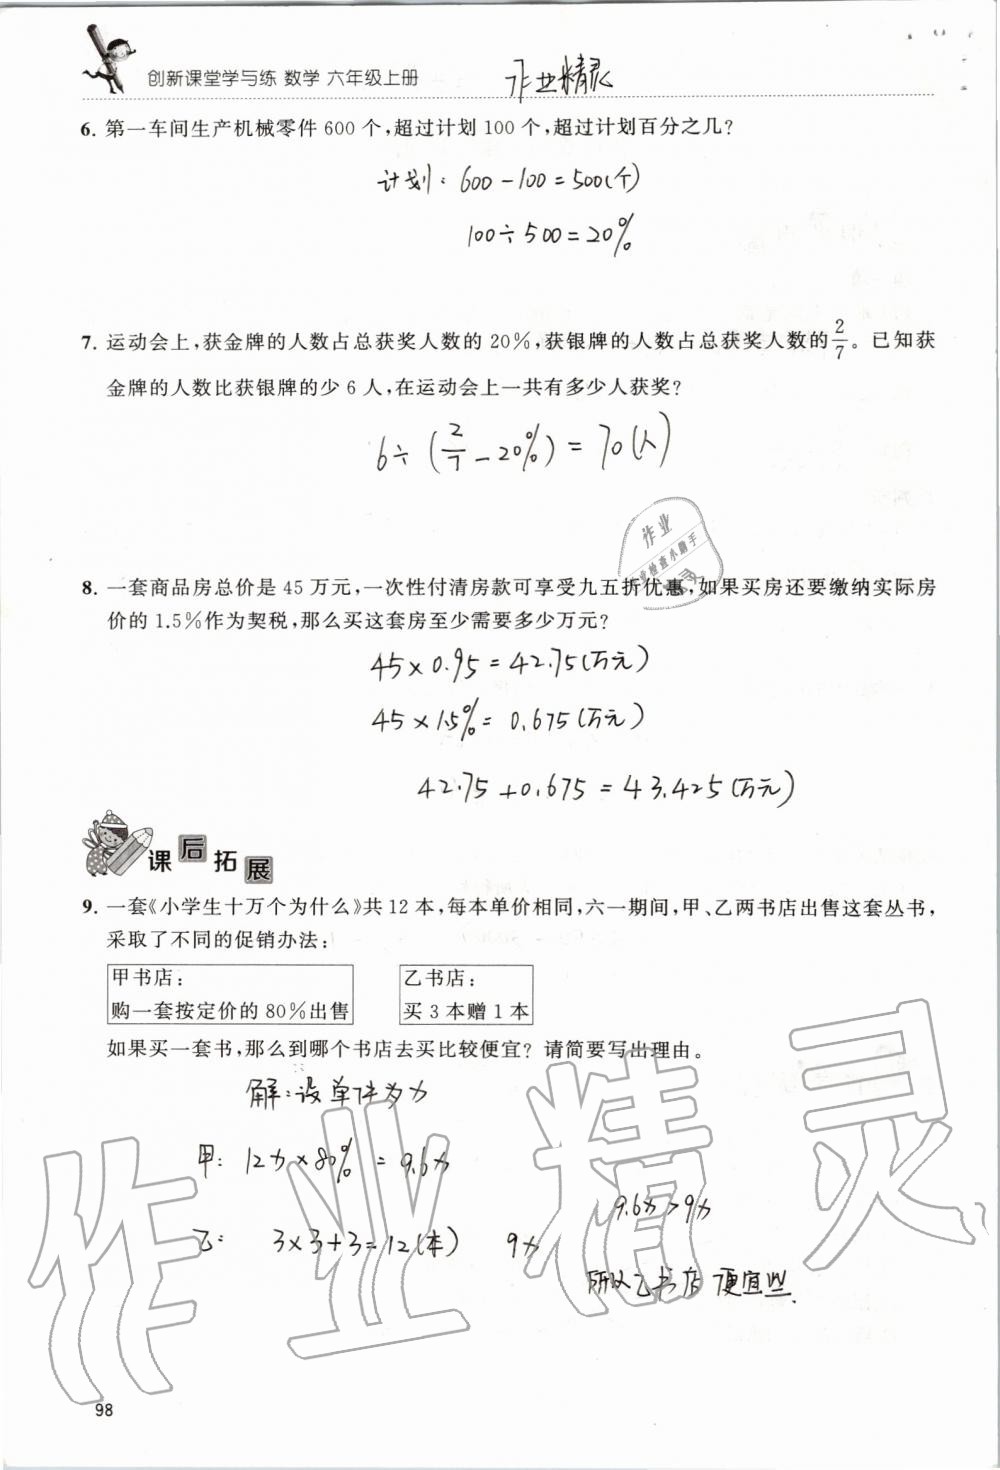 创新课堂学与练 数学 六年级上册
作业精灵
6. 第一车间生产机械零件 600 个,超过计划 100 个,超过计划百分之几?
计划: 600-100=500(个)
100÷500=20%
7. 运动会上,获金牌的人数占总获奖人数的 20%,获银牌的人数占总获奖人数的 2/7。已知获
金牌的人数比获银牌的少 6 人,在运动会上一共有多少人获奖?
6÷(2/7-20%)=70(人)
作业
检查小助手
8. 一套商品房总价是 45 万元,一次性付清房款可享受九五折优惠,如果买房还要缴纳实际房
价的 1.5%作为契税,那么买这套房至少需要多少万元?
45×0.95=42.75(万元)
45×1.5%=0.675(万元)
42.75+0.675=43.425(万元)
课后拓展
9. 一套《小学生十万个为什么》共 12 本,每本单价相同,六一期间,甲、乙两书店出售这套丛书,
采取了不同的促销办法:
甲书店:
购一套按定价的 80%出售
乙书店:
买 3 本赠 1 本
如果买一套书,那么到哪个书店去买比较便宜? 请简要写出理由。
解:设单价为x
甲: 12x×80%=9.6x
9.6x>9x
乙: 3×3+3=12(本) 9x
所以乙书店便宜些.
作业精灵
98